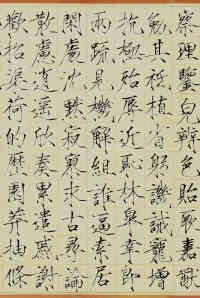 察理鑒皃辨色貽厥嘉猷
勉其祗植省躬譏誡寵增
抗極殆辱近恥林皋幸即
兩疏見機解組誰逼索居
閑處沈默寂寥求古尋論
散慮逍遙欣奏累遣慼謝
歡招渠荷的歷園莽抽條